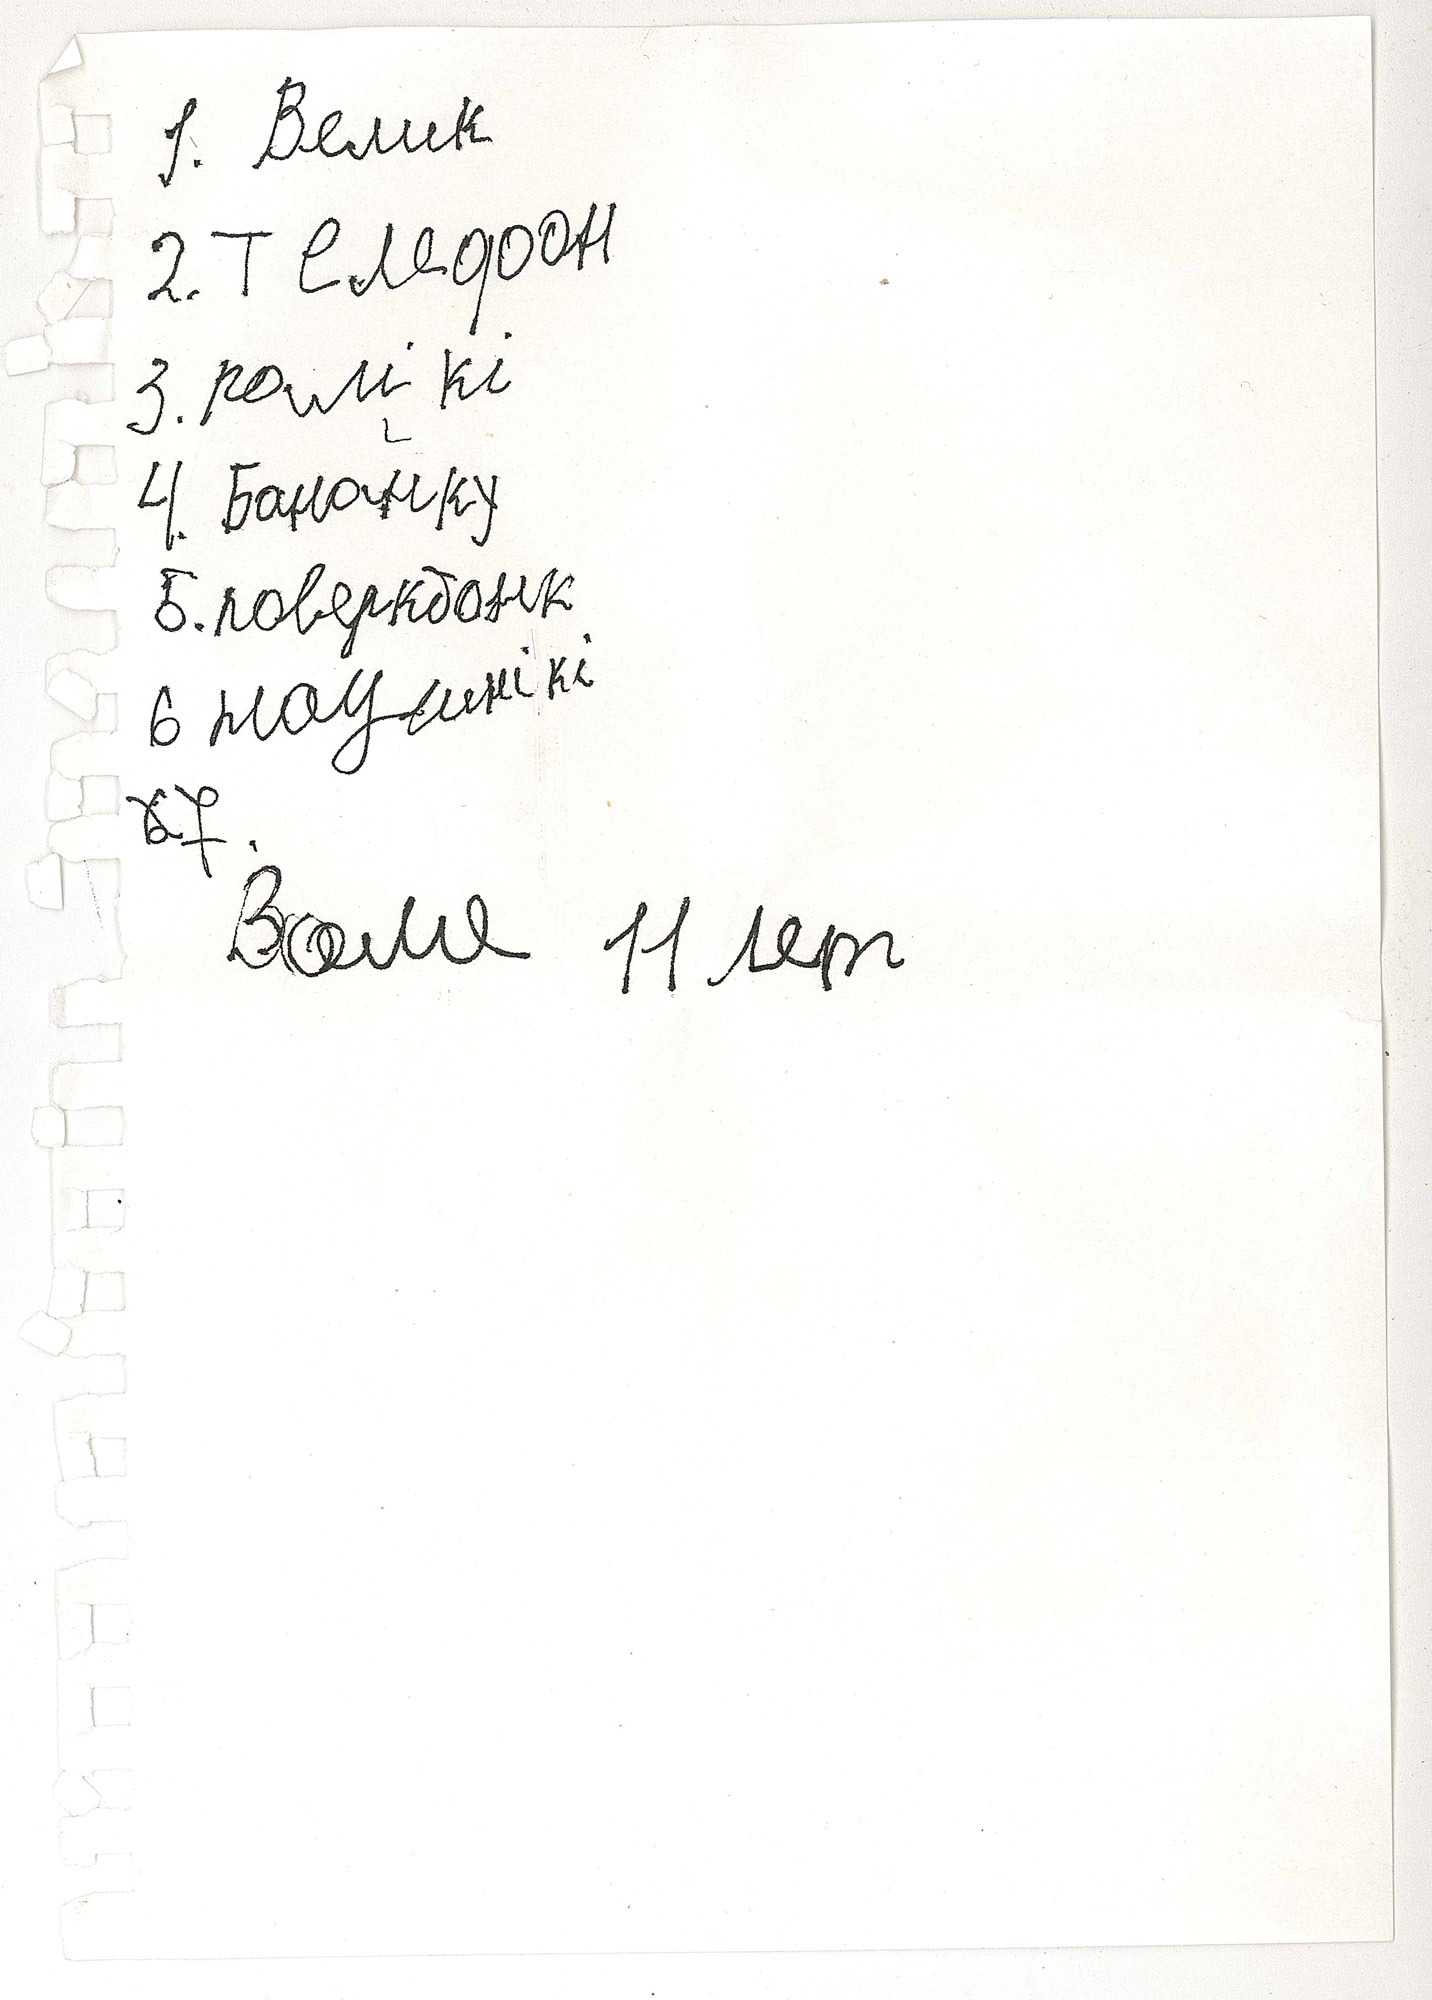 1. Велик
2. Телефон
3. ролікі
4. Бананку
5. поверкбанк
6 наушнікі
7.
Валя 11 лет